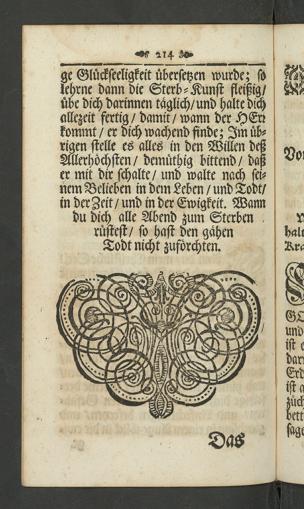 214
ge Glückseeligkeit übersetzen wurde; so
lehrne dann die Sterb-Kunst fleißig/
übe dich darinnen täglich/und halte dich
allezeit fertig/ damit/ wann der HErr
kommt/ er dich wachend finde; Im üb-
rigen stelle es alles in den Willen deß
Allerhöchsten/ demüthig bittend/ daß
er mit dir schalte/ und walte nach sei-
nem Belieben in dem Leben/ und Todt/
in der Zeit/ und in der Ewigkeit. Wann
du dich alle Abend zum Sterben
rüstest/ so hast den gähen
Todt nicht zuförchten.
Das